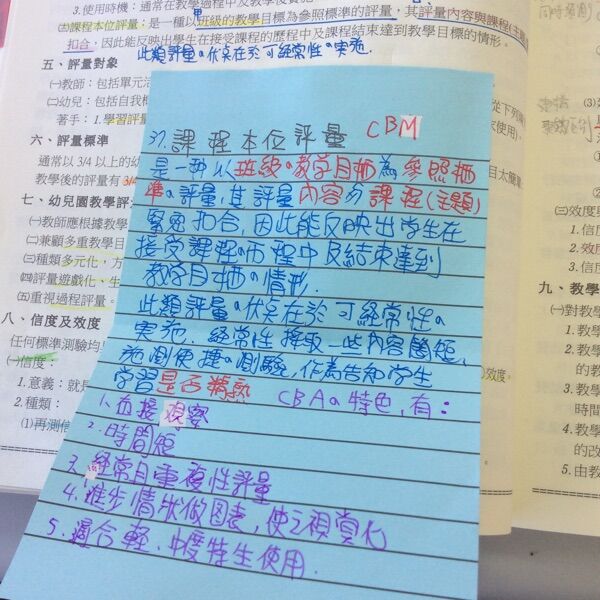 3.使用時機：通常在教學過程中及教學後實施
㈡課程本位評量：是一種以班級的教學目標為參照標準的評量，其評量內容與課程(主題)
扣合，因此能反映出學生在接受課程的歷程中及課程結束達到教學目標的情形。
此類評量的優点在於可經常性的實施.
五、評量對象
㈠教師：包括單元活
㈡幼兒：包括自我概
著手：1.學習評量
六、評量標準
通常以 3/4 以上的幼
教學後的評量有 3/4
七、幼兒園教學評
㈠教師應根據教學
㈡兼顧多重教學目
㈢種類多元化，方
㈣評量遊戲化、生
㈤重視過程評量。
八、信度及效度
任何標準測驗均
㈠信度：
1.意義：就是
2.種類：
⑴再測信
37.課程本位評量 CBM
是一種以班級的教學目標為參照標
準的評量，其評量內容与課程(主題)
緊密扣合，因此能反映出學生在
接受課程的历程中及結束達到
教學目標的情形.
此類評量的優点在於可經常性的
實施.經常性擷取一些內容簡短、
施測便捷的測驗，作為告知學生
學習是否精熟 CBA的特色，有：
1.直接視察
2.時間短
3.經常且重複性評量
4.進步情狀做圖表，使之視覺化
5.適合輕、中度特生使用.
同時
從下列
家使用)。
目太簡單
效度，
(3)
㈢效度與
1.信度
2.效度
3.信度
九、教學
㈠對教學
1.教學
的教
2.教學
3.教學
時間
4.教學
的改
5.由教